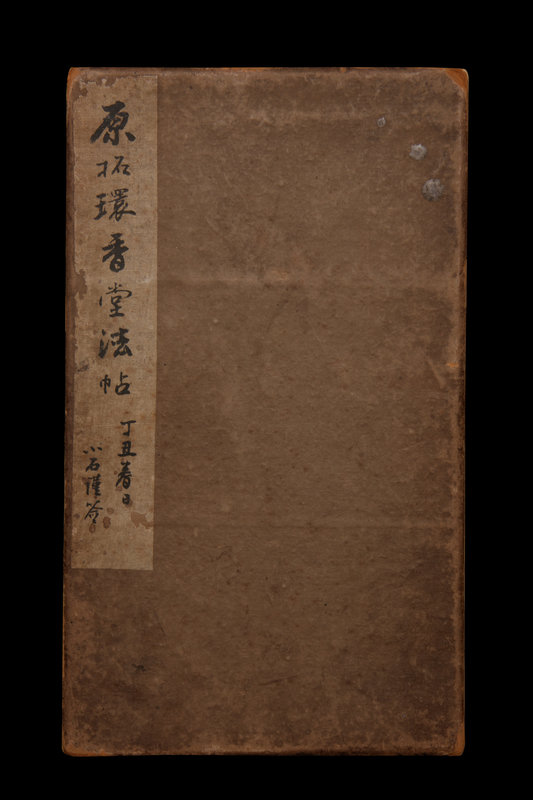 原拓環香堂法帖
丁丑春日
小石謹簽